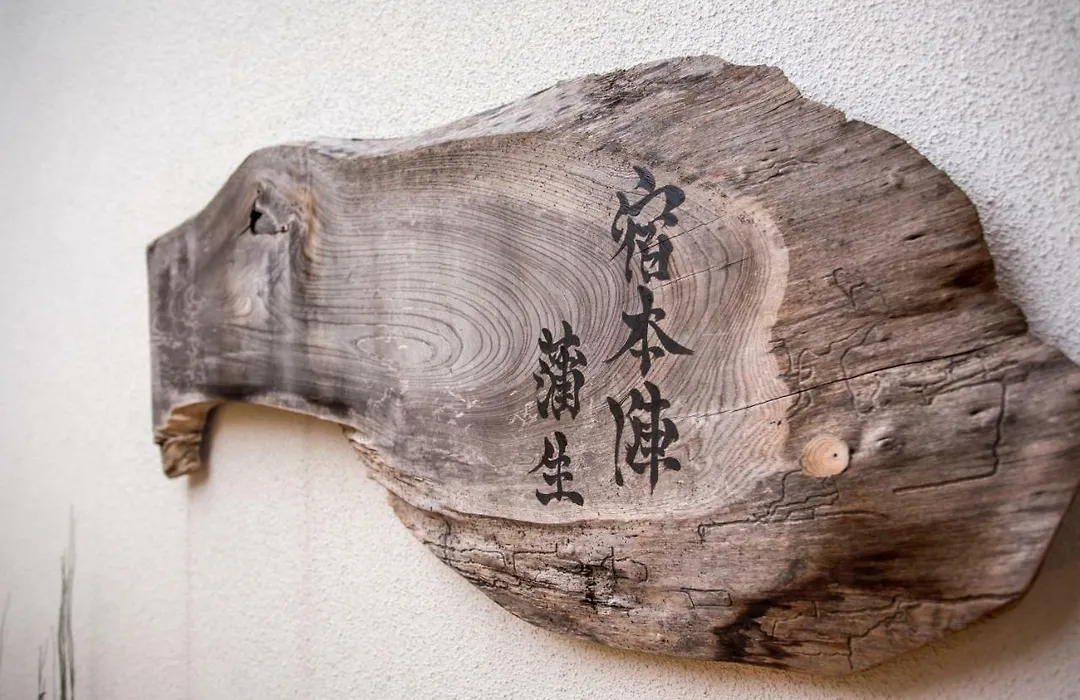 宿本陣
蒲生